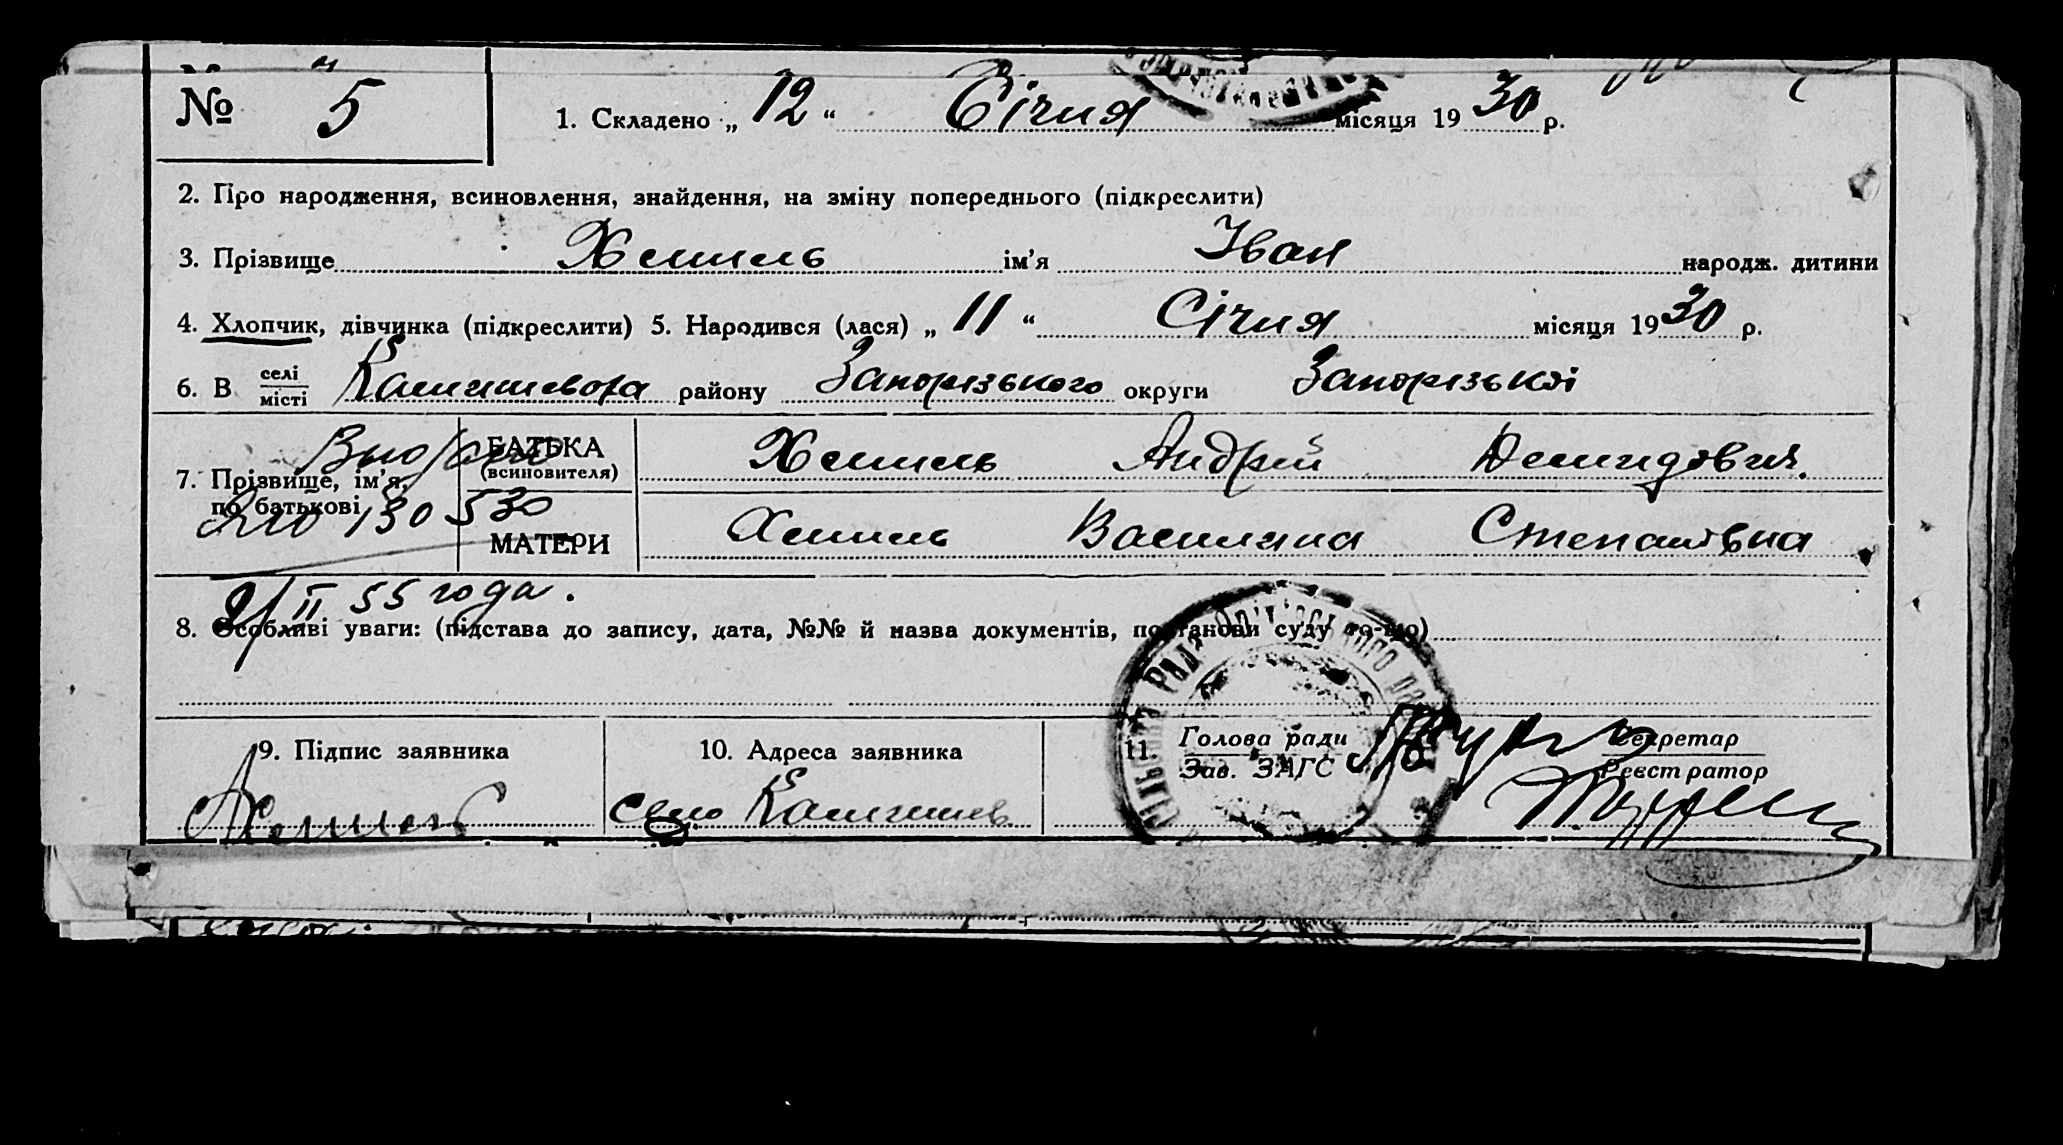 № 5
1. Складено „ 12 “ Січня місяця 19 30 р.
2. Про народження, всиновлення, знайдення, на зміну попереднього (підкреслити)
3. Прізвище Хемиль ім’я Іван народж. дитини
4. Хлопчик, дівчинка (підкреслити) 5. Народився (лася) „ 11 “ Січня місяця 19 30 р.
6. В селі місті району Запорізького округи Запорізької
7. Прізвище, ім’я, по батькові
БАТЬКА (всиновителя) Хемиль Андрій Демидович.
МАТЕРИ Хемиль Василина Степанівна
130530
21/II 55 года.
8. Особливі уваги: (підстава до запису, дата, №№ й назва документів, постанови суду то-що)
9. Підпис заявника
10. Адреса заявника
село
11. Голова ради
Зав. ЗАГС
Секретар
Реєстратор